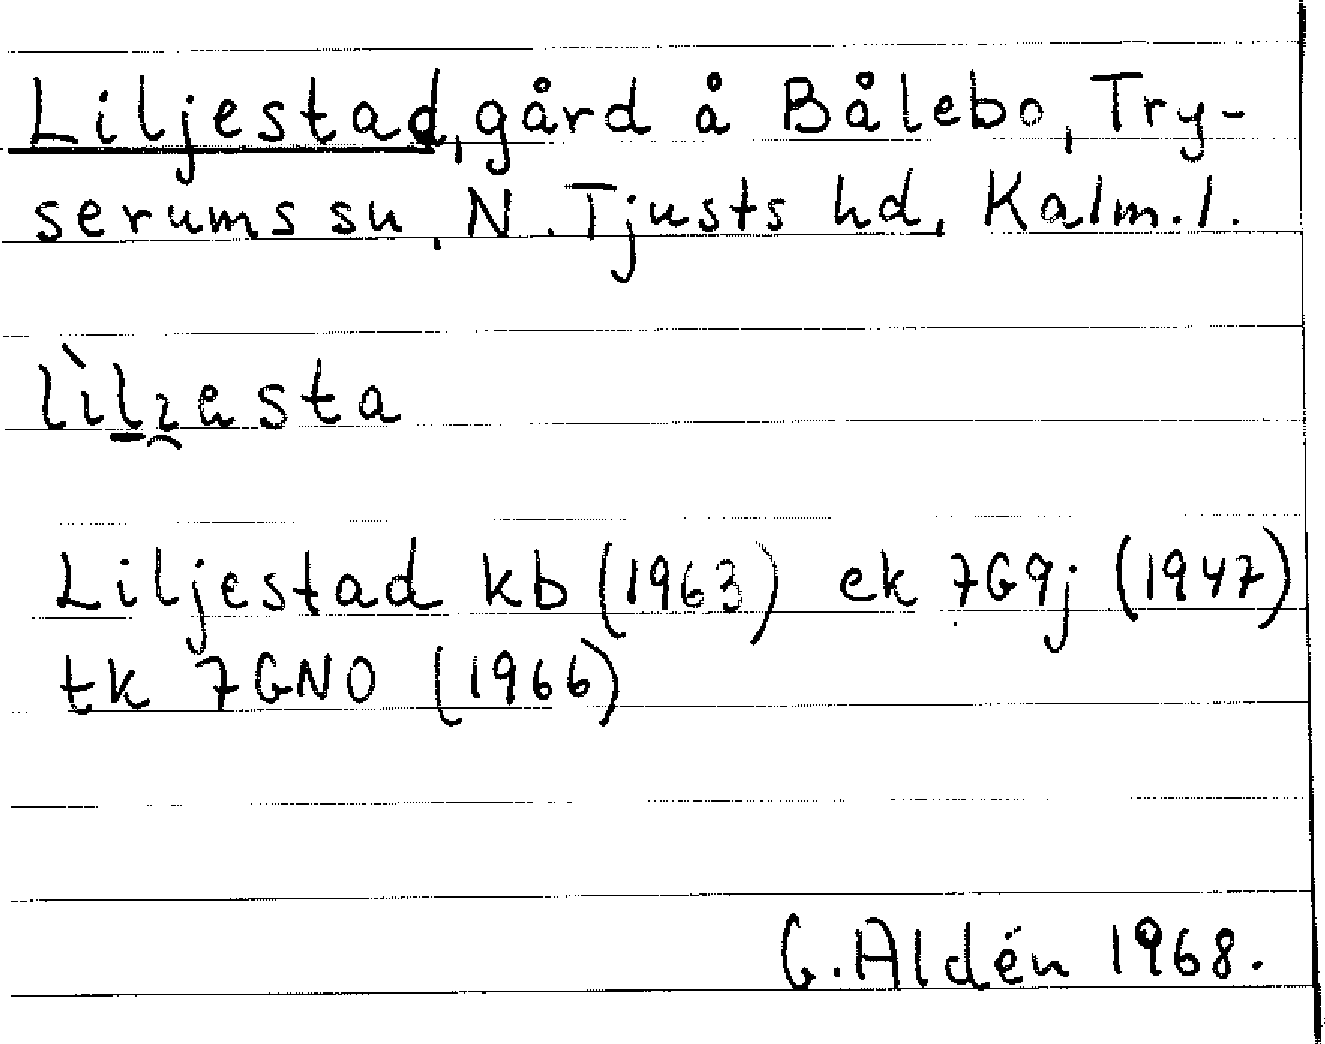 Liljestad, gård å Bålebo, Try-
serums sn, N. Tjusts hd, Kalm. l.
Liljestad kb (1963) ek 7G9j (1947)
tk 7GNO (1966)
G. Aldén 1968.